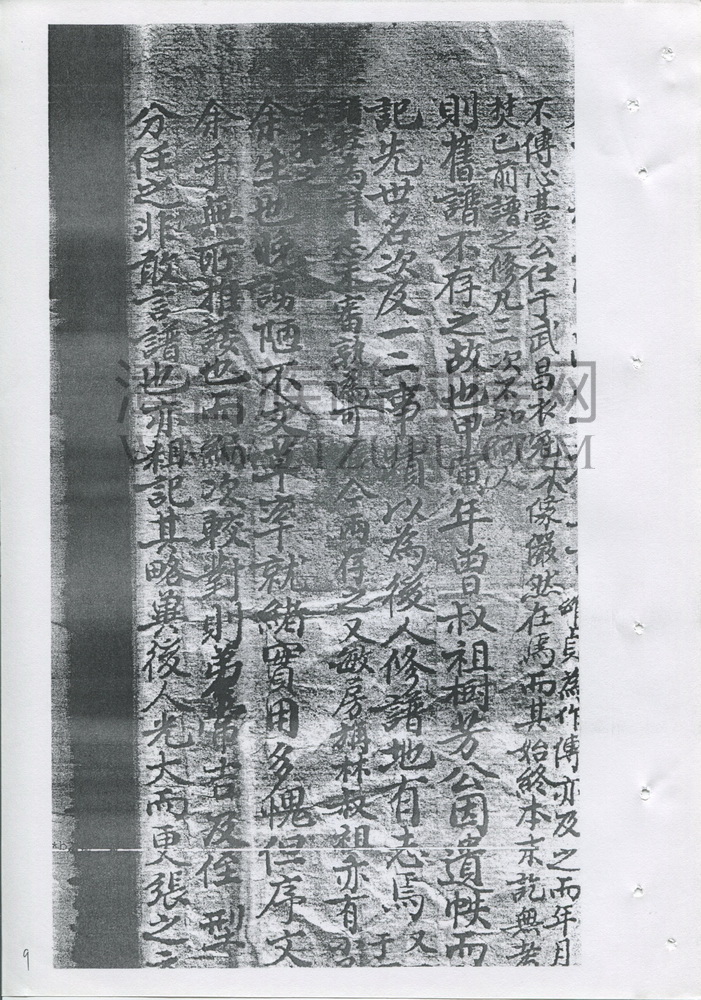 貞為作傳亦及之而年月
不傳心臺公任于武昌衣冠木像儼然在焉而其始終本末訖無考
焚已前譜之修凡三次不知何以
則舊譜不存之故也甲寅年曾叔祖樹芳公因遺帙而
記先世名次及一二事實以為後人修譜地有志焉又
不審孰為可今兩存之又敏房稱林叔祖亦有
余生也晚謭陋不文草率就緒實用多愧但序文
余手無所推諉也而編次較對則弟 吉及侄型
分任之非敢言譜也亦粗記其略冀後人光大而更張之
9